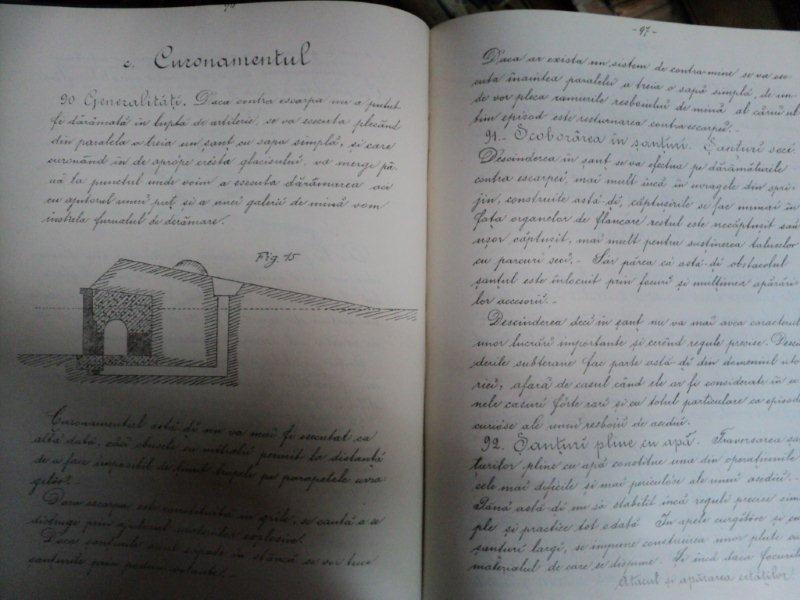 c. Curonamentul
90 Generalități. Daca contra escarpa nu a putut
fi dărâmată în lupta de artilerie, se va esecuta plecând
din paralela a treia un șanț cu sapa simplă, și care
curonând în de aprópe crista glacisului, va merge pâ-
nă la punctul unde voim a esecuta dărâmarea aci
cu ajutorul unui puț și a unei galerii de mină vom
instala furnalul de derămare.
Fig. 15
Curonamentul astă-di nu va mai fi esecutat ca
altă dată, căci obusele cu mitralii permit la distanță
de a face imposibil de ținut trupele pe parapetele
Daca escarpa este constituită in grile, se caută a se
distruge prin ajutorul explosive.
Daca santurile sunt sapate în stâncă se vor trece
santurile prin volante.
-97-
Daca ar exista un sistem de contra mine se va ese-
cuta înaintea paralelei a treia o sapă simplă, de un-
de vor pleca ramurile resboiului de mină al cărui ul-
tim episod este resturnarea contra escarpei.-
91.- Scoborârea în șanțuri. Șanțuri seci.
Descinderea în șanț se va efectua pe dărâmăturile
contra escarpei, mai mult încă în uvragele din spri-
jin, construite astă-di, căptușirile se fac numai în
fața organelor de flancare restul este necăptușit sau
ușor căptușit, mai mult pentru susținerea taluselor
cu parcuri seci.- S'ar părea că astă-di obstacolul
șanțul este înlocuit prin focuri și mulțimea apărări-
lor accesorii.-
Descinderea deci în șanț nu va mai avea caracterul
unor lucrări importante și cerând regule precise. Descin-
derile subterane fac parte astă-di din domeniul isto-
riei, afară de casul când ele ar fi considerate în u-
nele casuri fórte rari și cu totul particulare ca episode
curióse ale unui resboiu de asediu.
92. Șanțuri pline cu apă. Traversarea șan-
țurilor, pline cu apă constitue una din operațiunile
cele mai dificile și mai periculóse ale unui asediu.-
Până astă-di nu s'a stabilit încă regule precise sim-
ple și practice tot odată. In apele curgătóre și cu
șanțuri largi, se impune construirea unor plute cu
materialul de care se dispune. Și încă daca focurile
Atacul și apărarea cetăților.